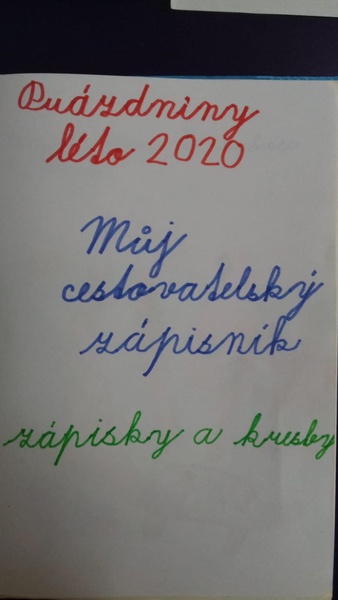 Puázdniny
léto 2020
Můj
cestovatelský
zápisník
zápisky a kresby